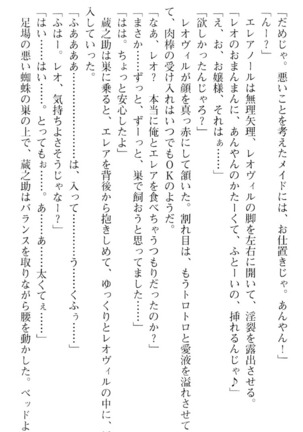 「おじゃ。悪いことを考えたメイドには、お仕置きじゃ。あーん」
「んー？」
エレアノールは無理矢理、レオヴィルの脚を左右に開いて、淫裂を露出させる。
「レオのおまんまんに、あんやんのかたーくて、ふとーいの、挿れるんじゃ♪」
「お、お嬢様、それはぁ……」
「欲しかったんじゃろ？」
レオヴィルが顔を真っ赤にして頷いた。割れ目は、もうトロトロと愛液を溢れさせて
て、肉棒の受け入れはいつでもOKのようだ。
「なあ、レオ？　本当に俺とエレアを食べちゃうつもりだったのか？」
「まさか……ずっと、ずーっと、巣で飼おうと思ってました……」
「はは、ちょっと安心したよ」
蔵之助は巣に乗ると、エレアを背後から抱きしめて、ゆっくりとレオヴィルの中に、
入していった。
「ふああああ…………は、入って…………う……くふぅ……」
「ふはー。レオ、気持ちよさそうじゃなー？」
「はい……はい……。とっても……ぉ……。あ……あ……太くてぇ……」
足場の悪い蜘蛛の巣の上で、蔵之助はバランスを取りながら腰を動かした。ベッドよ